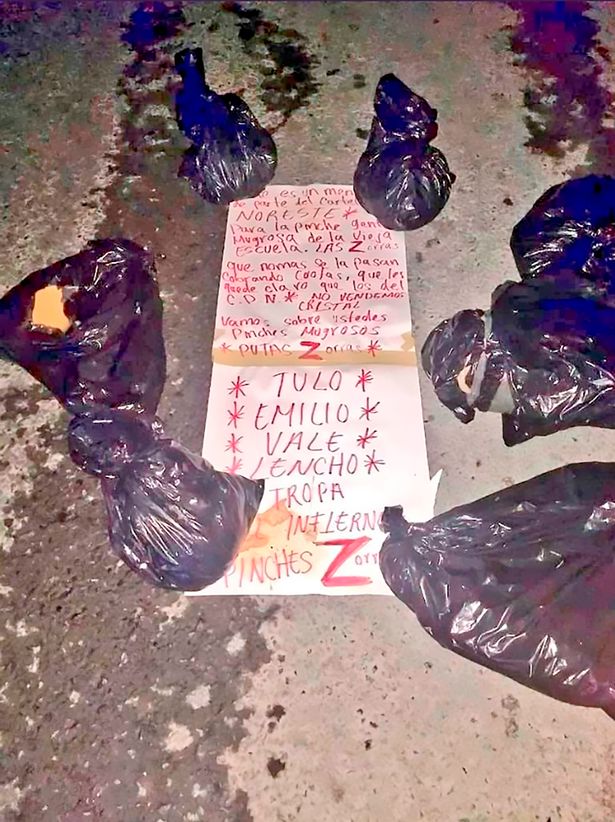 es un men
parte del Carte
NORESTE*
Para la pinche gente
Mugrosa de la Vieja
Escuela. LAS Zorras
que nomas se la pasan
Cobrando Cootas, que les
quede claro que los del
C.D.N * NO VENDEMOS
CRISTAL
Vamos sobre ustedes
Pinches Mugrosos
* PUTAS Zorras *
* TULO *
* EMILIO *
* VALE *
* LENCHO *
TROPA
INFIERN
PINCHES Zorr